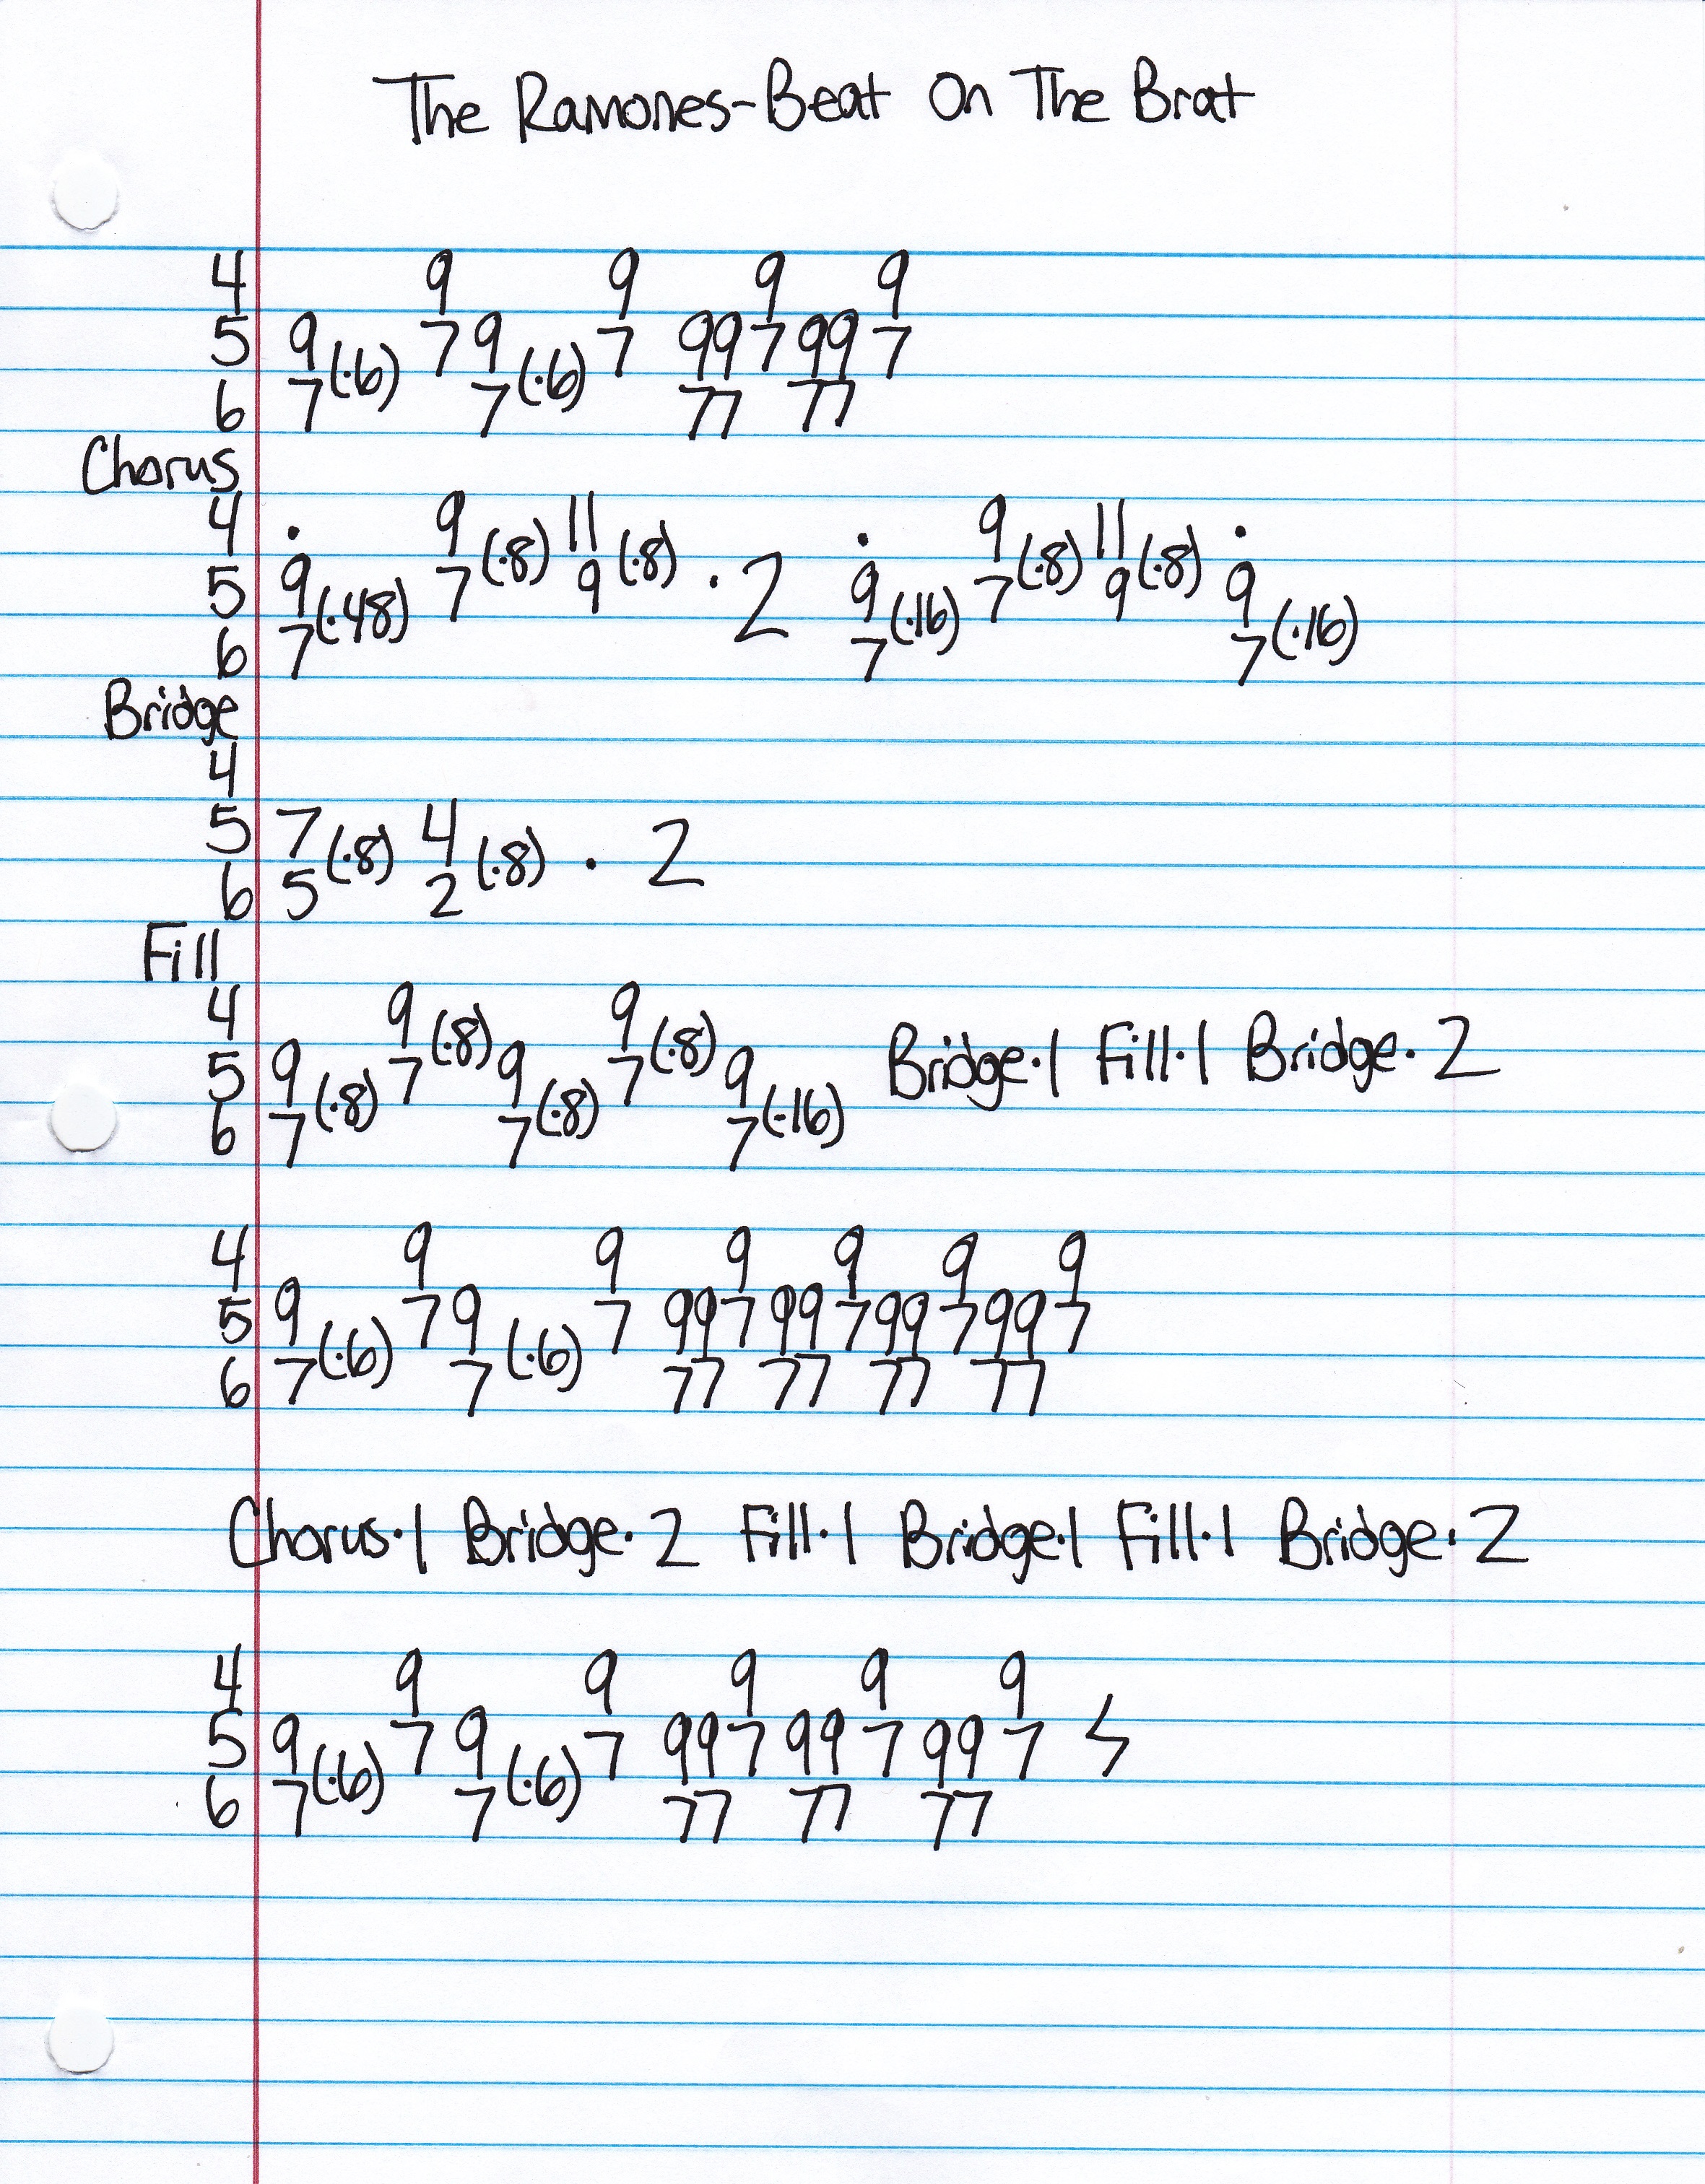 The Ramones-Beat On The Brat
4 9 9 9 9
5 9(·6) 7 9(·6) 7 99 7 99 7
6 7 7 77 77
Chorus
4 · 9(·8) 11(·8) · 9(·8) 11(·8) ·
5 9(·48) 7 9 · 2 9(·16) 7 9 9(·16)
6 7 7 7
Bridge
4
5 7(·8) 4(·8) · 2
6 5 2
Fill
4 9(·8) 9(·8)
5 9(·8) 7 9(·8) 7 9(·16) Bridge·1 Fill·1 Bridge·2
6 7 7 7
4 9 9 9 9 9 9
5 9(·6) 7 9(·6) 7 99 7 99 7 99 7 99 7
6 7 7 77 77 77 77
Chorus·1 Bridge·2 Fill·1 Bridge·1 Fill·1 Bridge·2
4 9 9 9 9 9
5 9(·6) 7 9(·6) 7 99 7 99 7 99 7
6 7 7 77 77 77